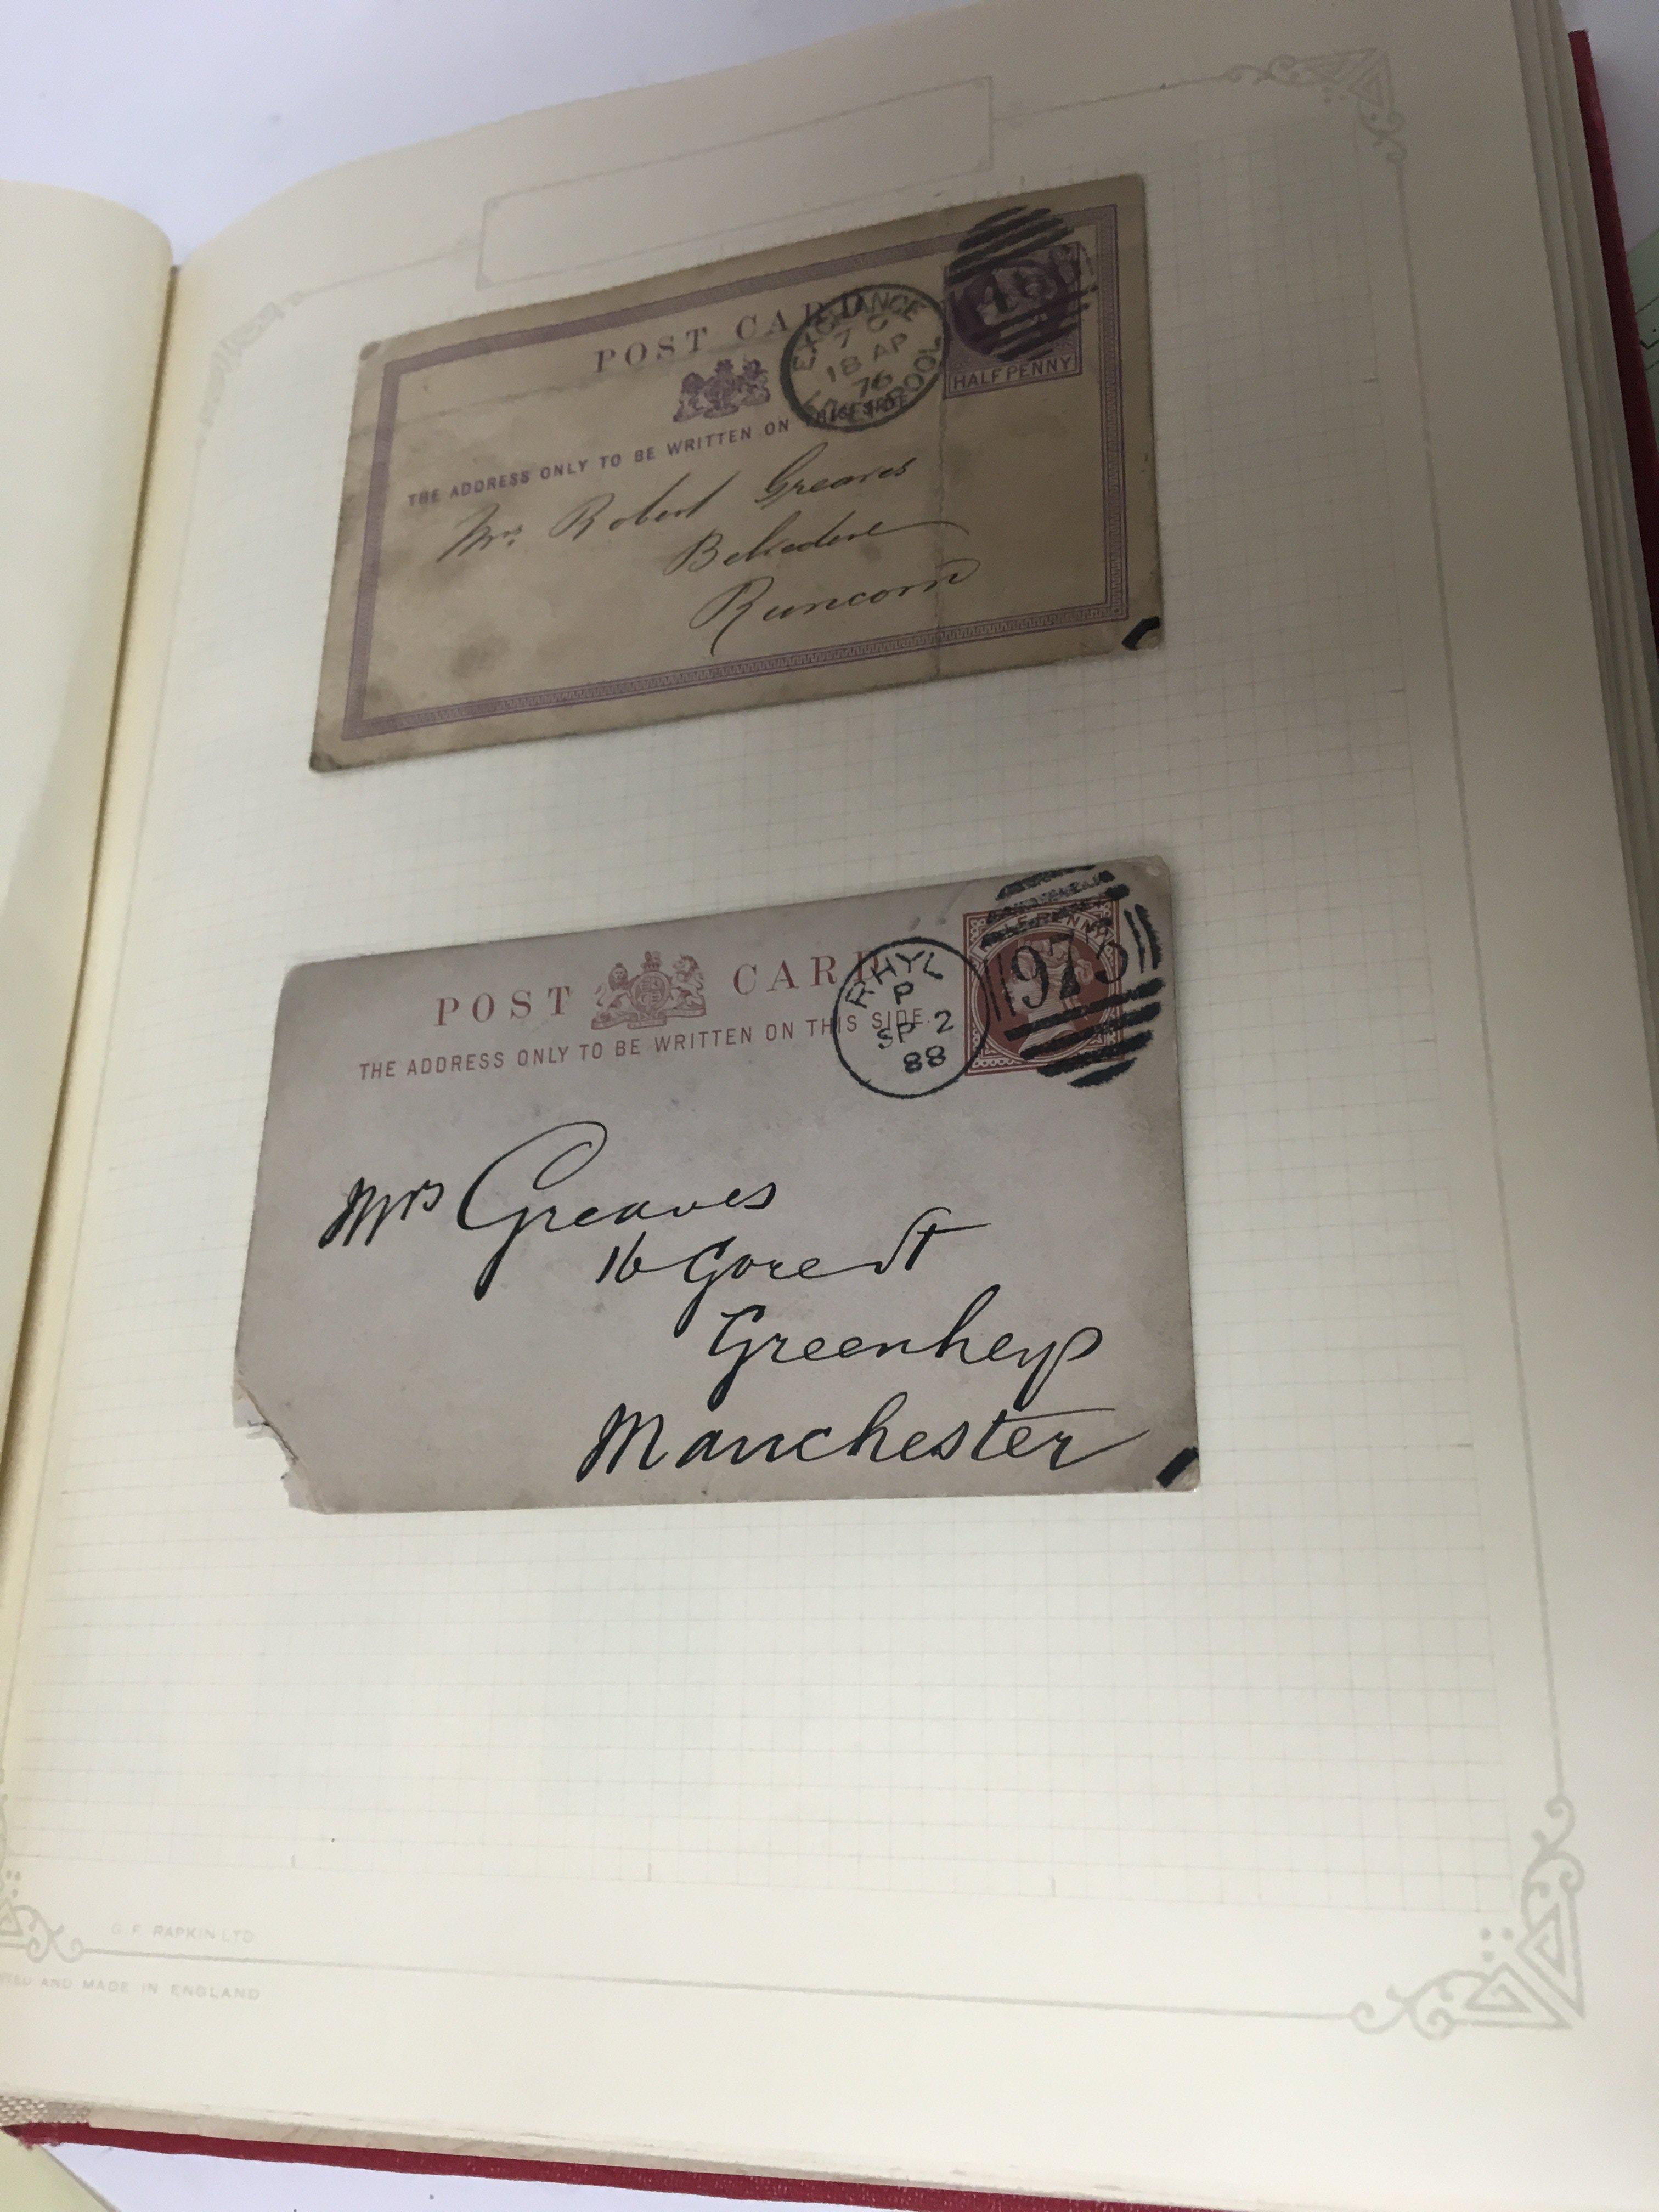 POST CARD
EXCHANGE
7 C
18 AP
76
L'POOL
HALFPENNY
THE ADDRESS ONLY TO BE WRITTEN ON THIS SIDE
Mrs. Robert Greaves
Belvedere
Runcorn
POST CARD
THE ADDRESS ONLY TO BE WRITTEN ON THIS SIDE.
RHYL
P
SP 2
88
HALFPENNY
975
Mrs Greaves
16 Gore St
Greenheys
Manchester
G. F. RAPKIN LTD
AND MADE IN ENGLAND